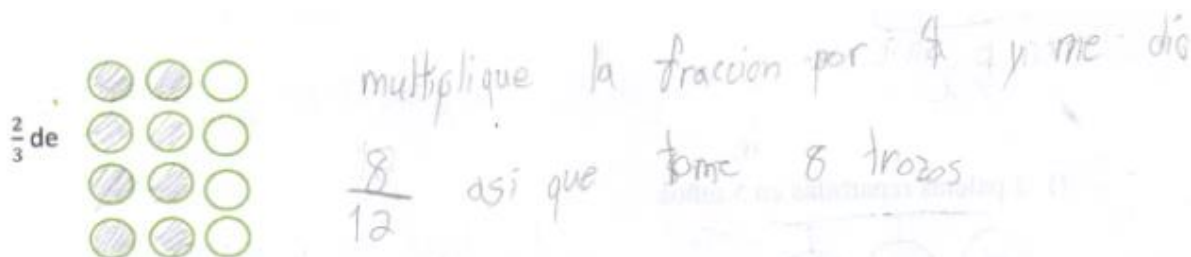 2/3 de
multiplique la fraccion por 4 y me dio
8/12 asi que tome 8 trozos